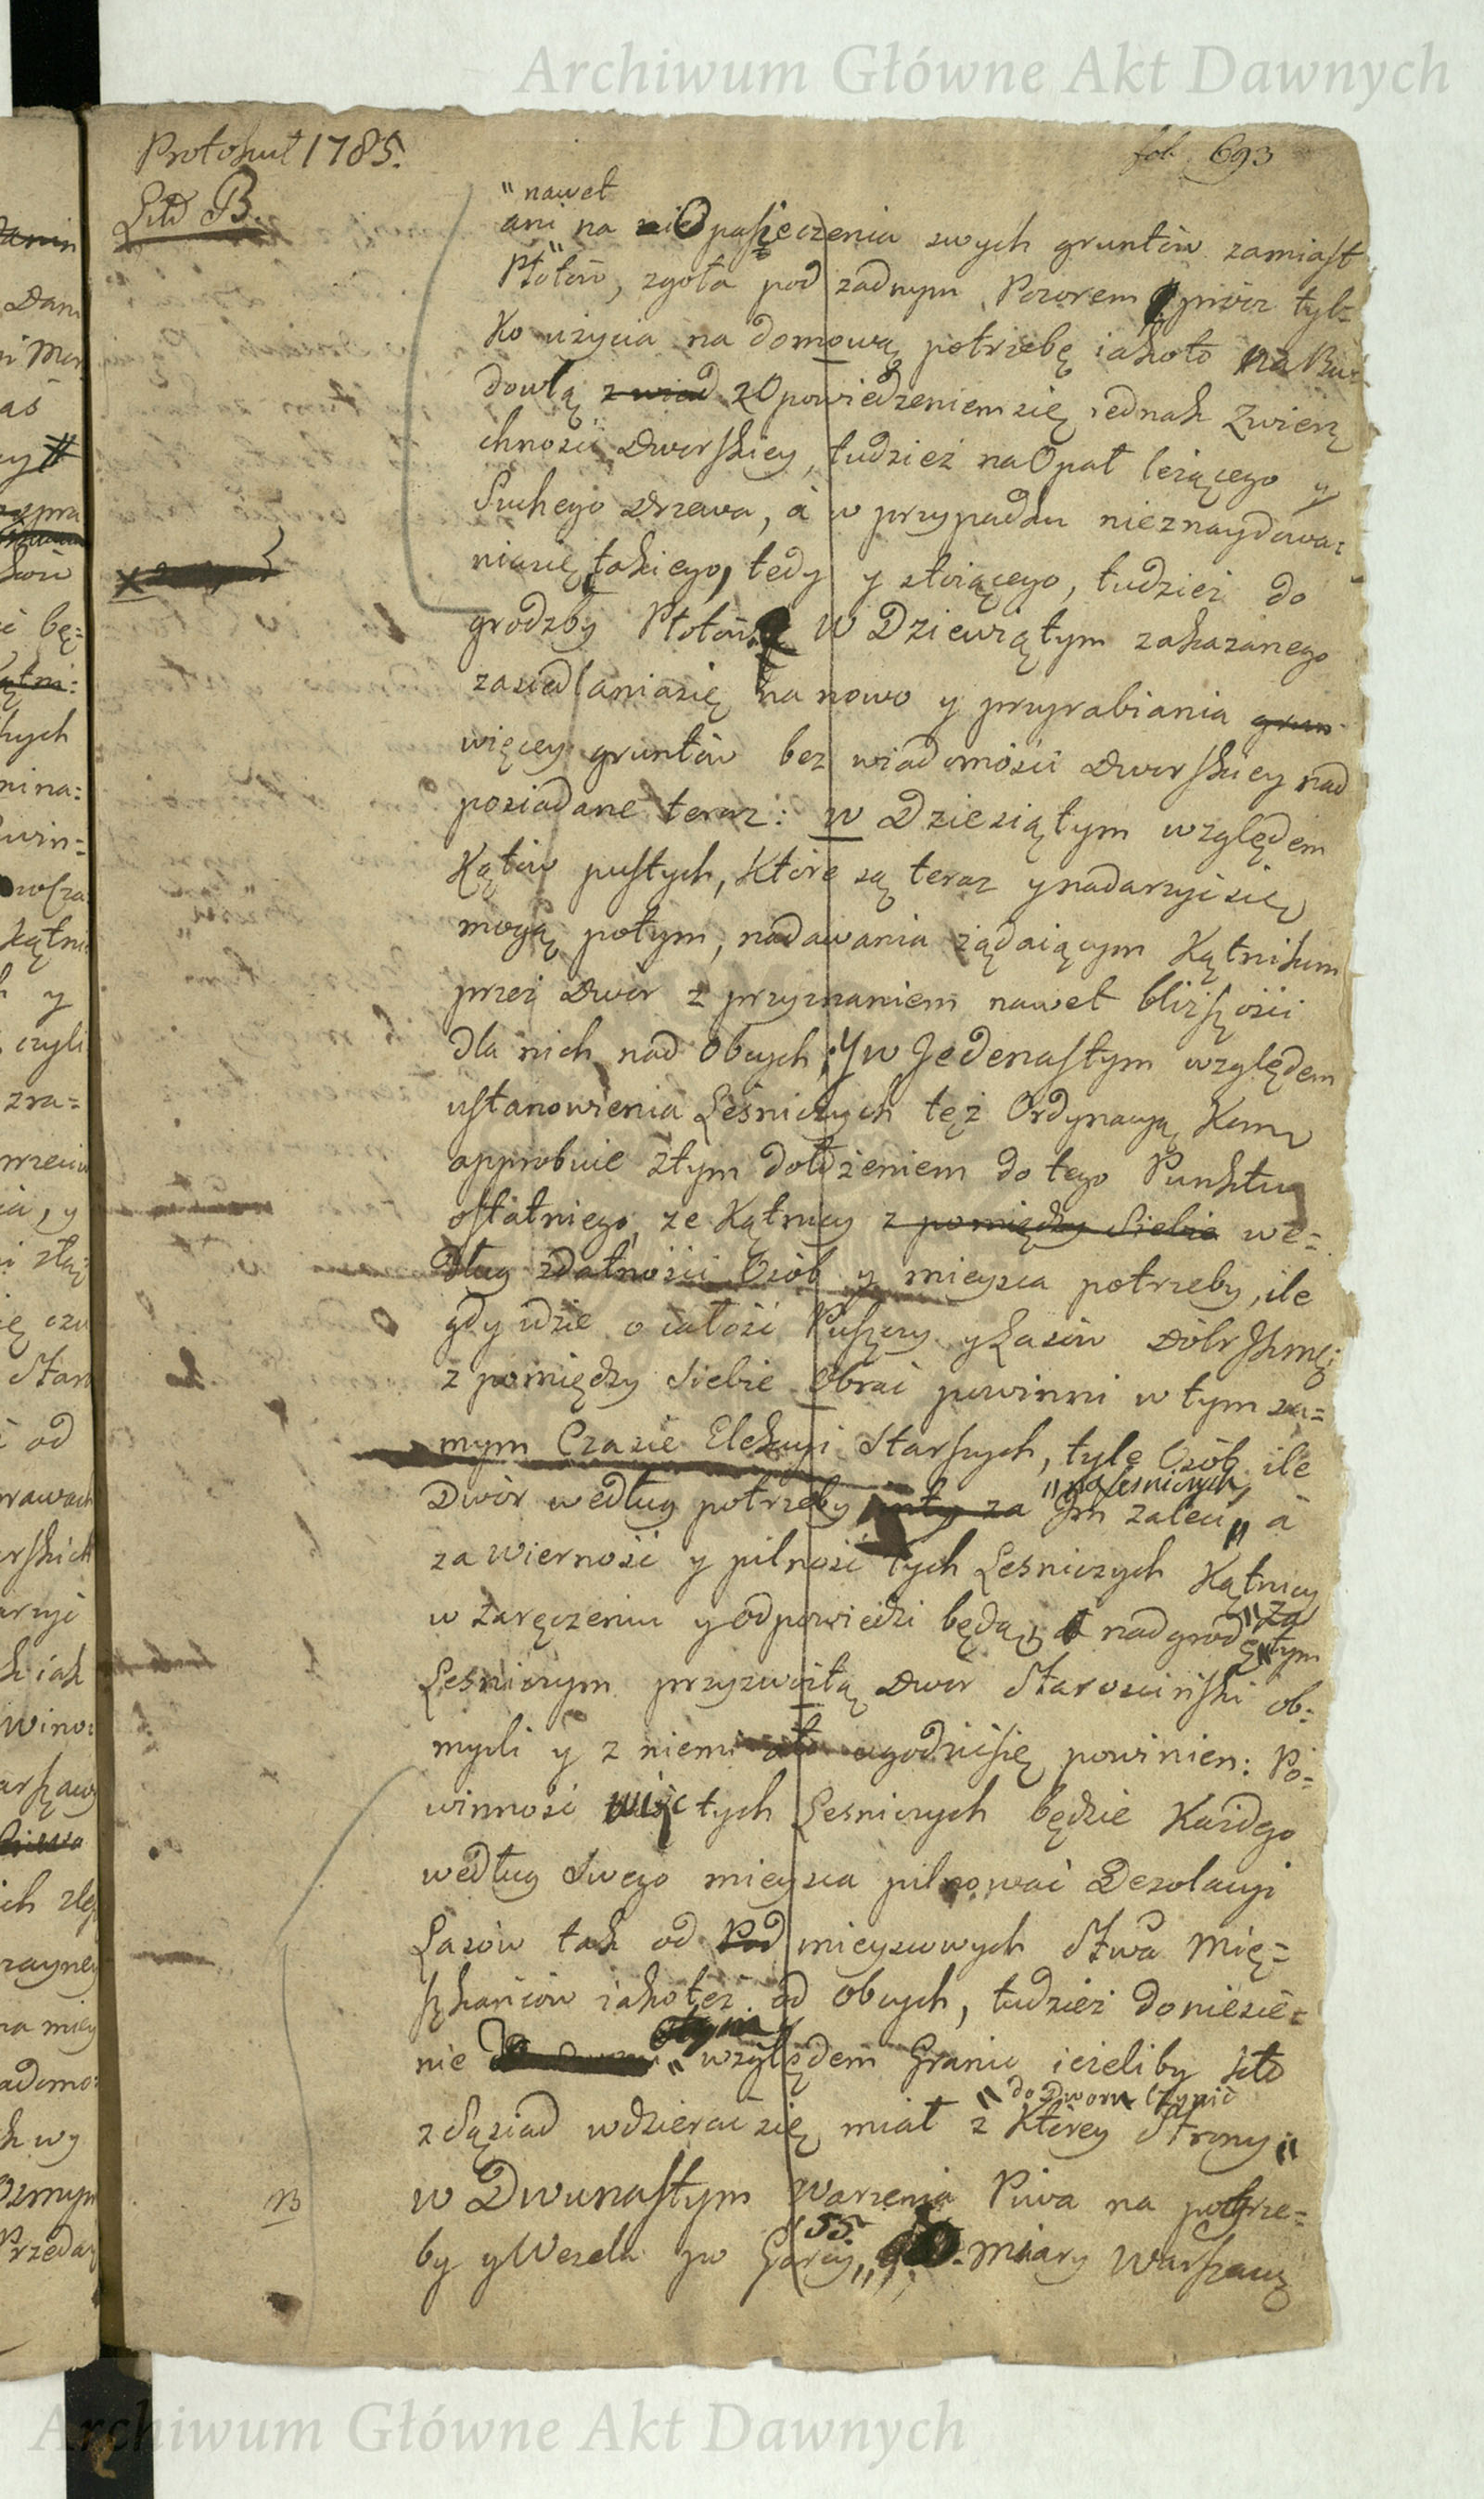 Archiwum Główne Akt Dawnych
Protokuł 1785.
fol. 693
Litt B.
"nawet
ani na Opasieczenia swych gruntów zamiast
Płotów, zgoła pod żadnym Pozorem prócz tyl=
ko użycia na domową potrzebę iakoto na Bu=
dowlą z wiad z Opowiedzeniem się iednak Zwierz
chnosci Dworskiey, tudzież na Opał leżącego y
Suchego Drzewa, á w przypadku nieznaydowa=
nia się takiego, tedy y stoiącego, tudzież do
grodzby Płotów. W Dziewiątym zakazanego
zasiadlania się na nowo y przyrabiania grun
więcey gruntów bez wiadomości Dworskiey nad
posiadane teraz: w Dziesiątym względem
Kątów pustych, które są teraz y nadarzyć się
mogą potym, nadawania żądaiącym Kątnikom
przez Dwór z przyznaniem nawet bliższości
dla nich nad Obcych; Y w Jedenastym względem
ustanowienia Leśniczych też Ordynacyą Kom
approbuie z tym dołożeniem do tego Punktu
ostatniego, że Kątnicy z pomiędzy Siebie we=
dług zdatności Osób y mieysca potrzeby, ile
gdy idzie o całość Puszczy y Lasów Dóbr JKmci
z pomiędzy Siebie Obrać powinni w tym sa=
mym Czasie Elekcyi Starszych, tyle Osób ile
"na Lesniczych,
Dwór według potrzeby Im zaleci" á
za wierność y pilność tych Lesniczych Kątnicy
w zaręczeniu y odpowiedzi będą, á nadgrodę "za
tym
Lesniczym przyzwoitą Dwor Starosciński ob=
myśli y z niemi ugodzić się powinien: Po=
winność więc tych Lesniczych będzie Każdego
według Swego mieysca pilnować Dezolacyi
Lasów tak od Pod mieyscowych Stwa Mię=
szkańców iakoteż od Obcych, tudzież doniesie=
o tym
nie " względem Granic ieżeliby kto
"do Dworu czynić
z Sąsiad wdzierać się miał z którey Strony"
NB
w Dwunastym Warzenia Piwa na potrze=
by y Wesela po Garcy "55. miary Warszaws
Archiwum Główne Akt Dawnych